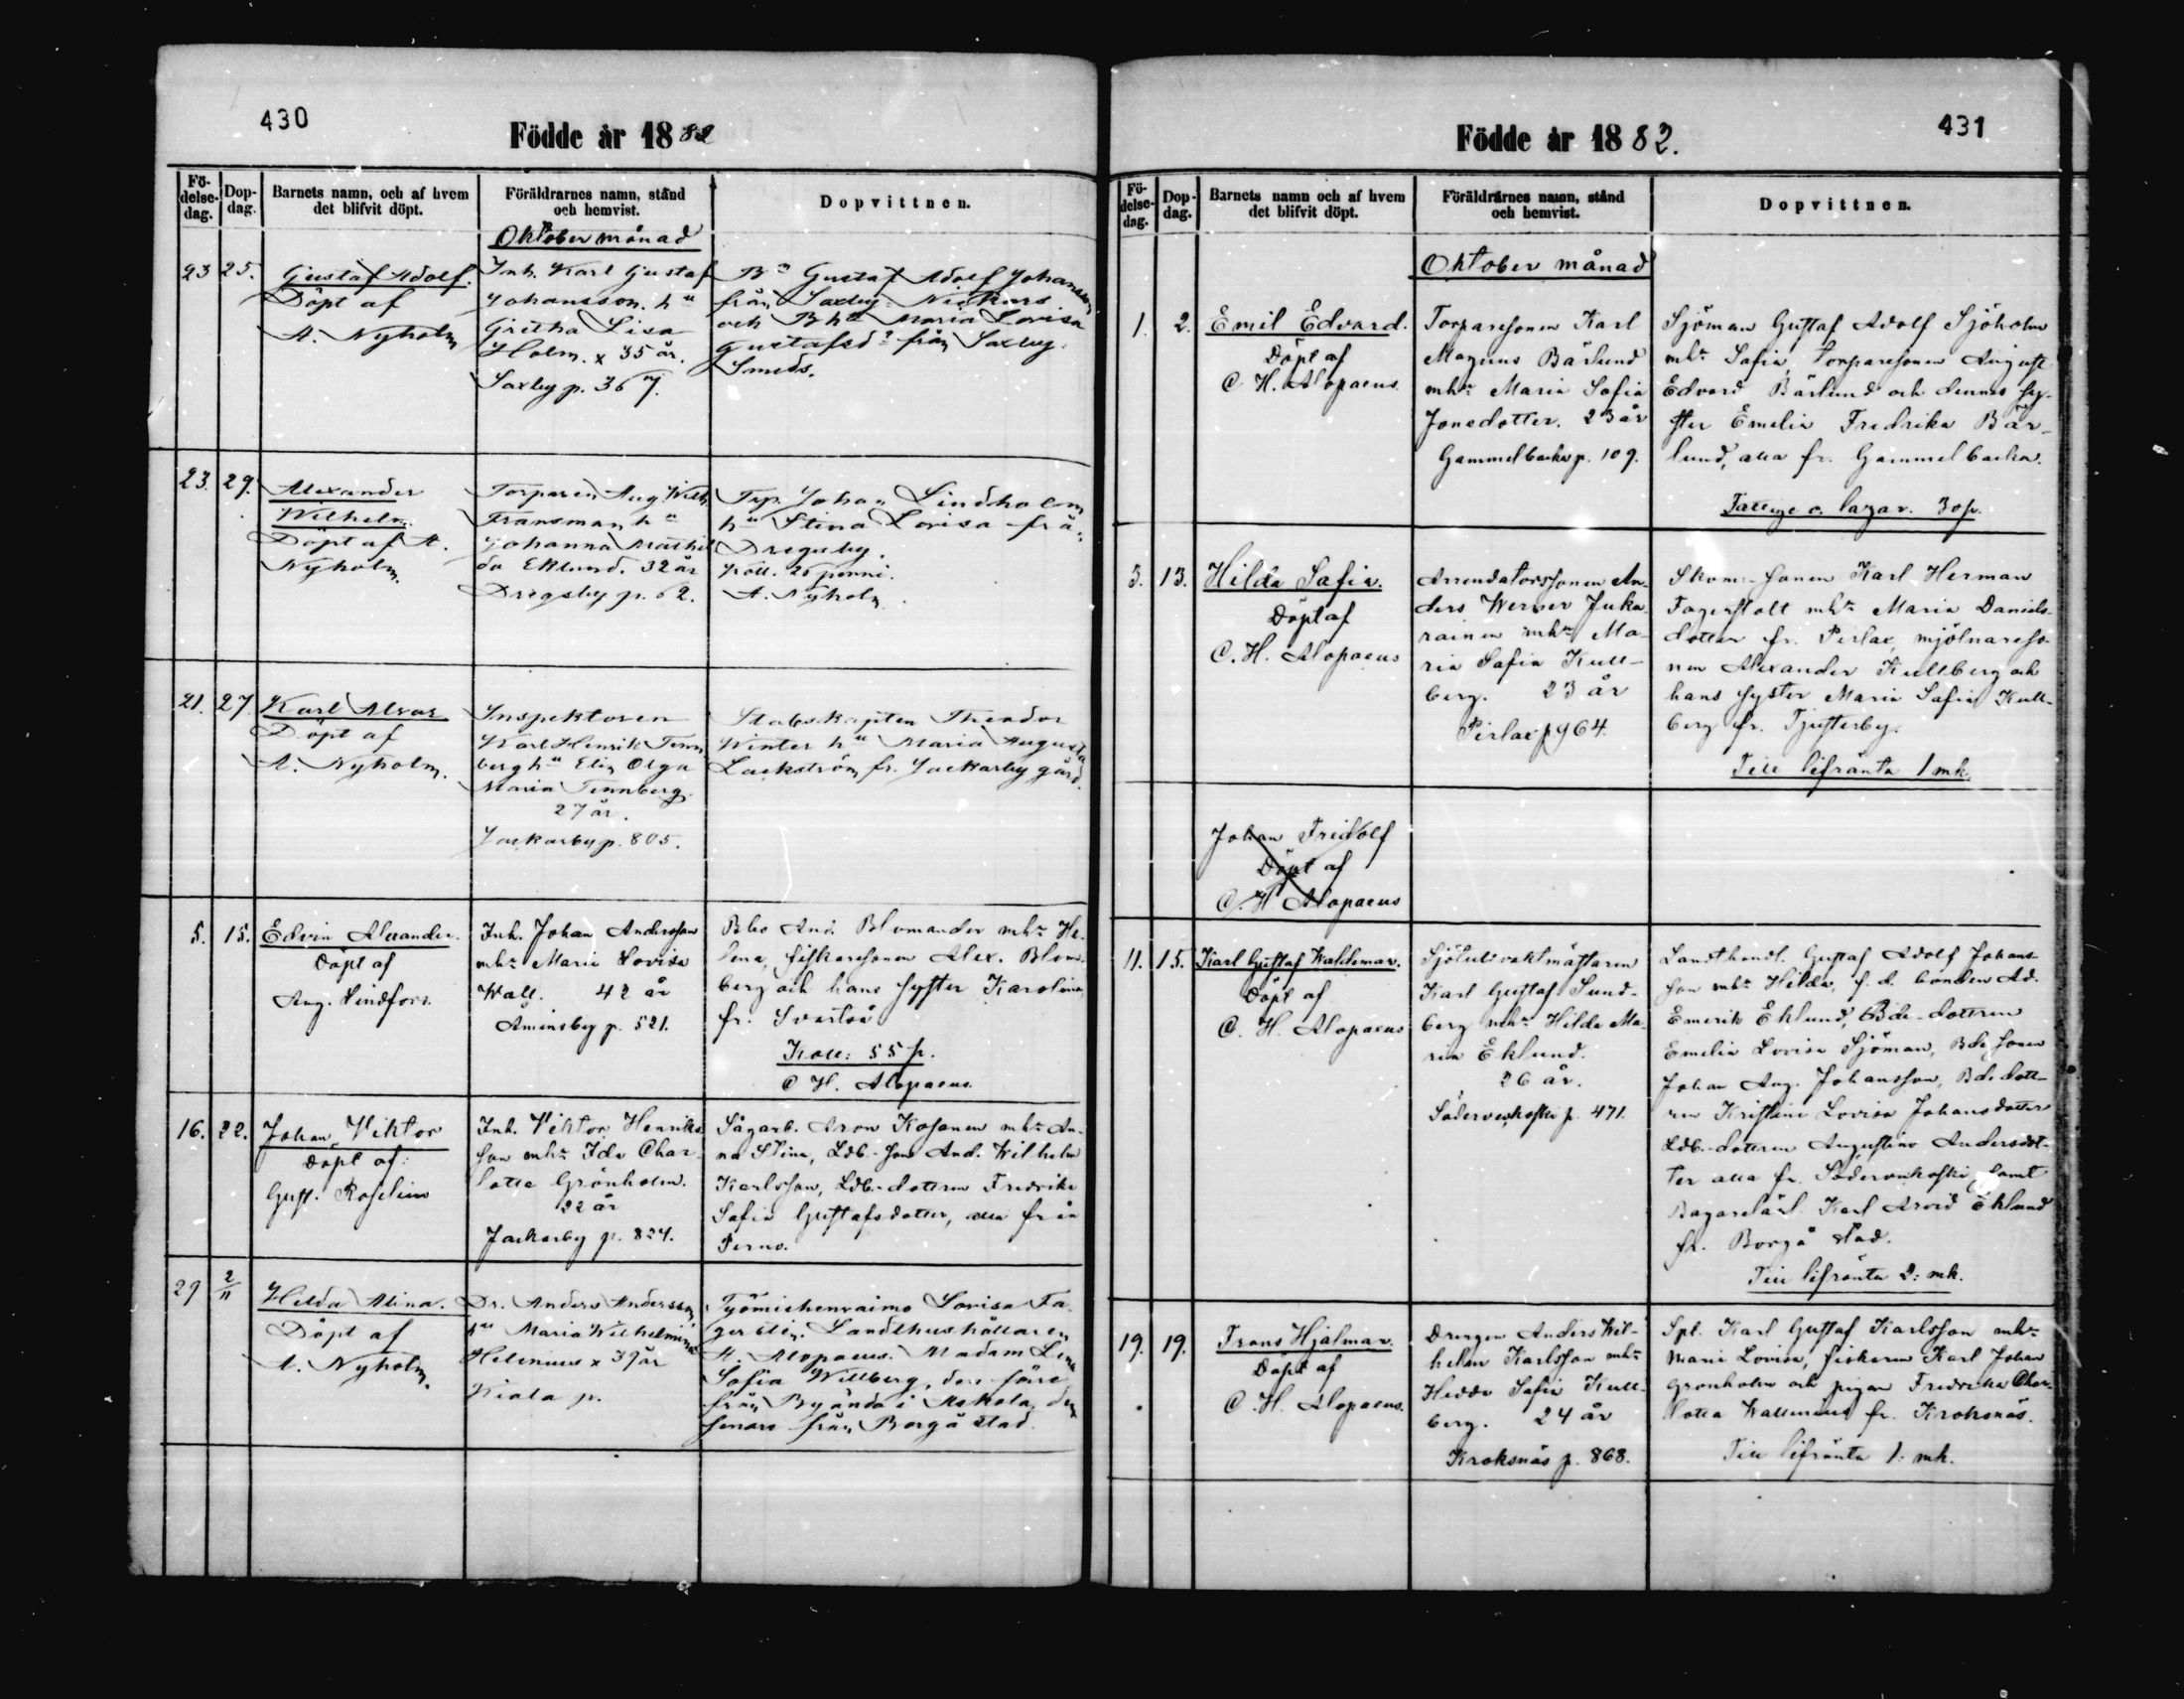 430
Födde år 1882
Fö-
delse-
dag.
Dop-
dag.
Barnets namn, och af hvem
det blifvit döpt.
Föräldrarnes namn, stånd
och hemvist.
Dopvittnen.
Oktober månad
23 25.
Gustaf Adolf.
Döpt af
A. Nyholm
Inh. Karl Gustaf
Johansson. hu
Gretha Lisa
Holm. x 35 år.
Saxby p. 367.
Bn Gustaf Adolf Johansson
från Saxby Nickars
och Bhu Maria Lovisa
Gustafsdr från Saxby
Smeds.
23. 29.
Alexander
Wilhelm.
Döpt af A.
Nyholm.
Torparen Aug. Wilh.
Fransman hu
Johanna Mathil
da Eklund. 32 år
Dregsby p. 62.
Trp. Johan Lindholm
hu Stina Lovisa frå.
Dregsby.
Koll. 25 penni.
A. Nyholm.
21. 27
Karl Alvar
Döpt af
A. Nyholm.
Inspektoren
Karl Henrik Tenn
berg hu Elin Olga
Maria Tennberg.
27 år.
Jackarby p. 805.
Stabskapten Theodor
Winter hu Maria Augusta
Lackström fr. Jackarby gård.
5. 15.
Edvin Alexander.
Döpt af
Aug. Lindfors.
Inh. Johan Andersson
mhr Maria Lovisa
Wall. 42 år
Åminsby p. 521.
Blomander mhr He-
lena, fiskaresonen Alex. Blom-
berg och hans syster Karolina,
fr. Svartså
Koll: 55 p.
C. H. Alopaeus.
16. 22.
Johan Viktor
döpt af:
Gust. Roselius
Inh. Viktor Henriks
son mhr Ida Char-
lotta Grönholm.
22 år
Jackarby p. 824.
Sågarb. Aron Kosonen mhr An-
na Stina, Ldb.-son And. Wilhelm
Karlsson, Ldb.-dottren Fredrika
Sofia Gustafsdotter, alla från
Perno.
29 2/11
Hilda Alina.
Döpt af
A. Nyholm.
Dr. Anders Andersson
hu Maria Wilhelmina
Helenius x 39 år
Kiala p.
Työmiehenvaimo Lovisa Fa-
gerstén. Landthushållaren
A. Alopaeus. Madam Lena
Sofia Willberg, de förre
från Byända i Askola, den
senare från Borgå stad.
431
Födde år 1882.
Fö-
delse-
dag.
Dop-
dag.
Barnets namn och af hvem
det blifvit döpt.
Föräldrarnes namn, stånd
och hemvist.
Dopvittnen.
Oktober månad
1. 2.
Emil Edvard.
Döpt af
C. H. Alopaeus.
Torparesonen Karl
Magnus Bärlund
mhr Maria Sofia
Jonedotter. 23 år
Gammelbacka p. 109.
Sjöman Gustaf Adolf Sjöholm
mhr Sofia, torparesonen August
Edvard Bärlund och dennes sy-
ster Emelia Fredrika Bär-
lund, alla fr. Gammelbacka.
Fattige o. lazar. 30 p.
3. 13.
Hilda Sofia.
Döpt af
C. H. Alopaeus
Arrendatorssonen An-
ders Werner Juka-
rainen mhr Ma-
ria Sofia Kull-
berg. 23 år
Pirlax p 964.
Skom.-sonen Karl Herman
Fagerstolt mhr Maria Daniels-
dotter fr. Perlax, mjölnareso-
nen Alexander Kullberg och
hans syster Maria Sofia Kull-
berg fr. Tjusterby.
Till lifränta 1 mk.
Johan Fridolf
Döpt af
C. H. Alopaeus
11. 15.
Karl Gustaf Waldemar.
Döpt af
C. H. Alopaeus
Karl Gustaf Sund-
berg mhr Hilda Ma-
ria Eklund.
26 år.
Södervekoski p. 471.
Landthandl. Gustaf Adolf Johans-
son mhr Hilda, f. d. bonden Ad.
Emerik Eklund, Bde-dottren
Emelia Lovisa Sjöman, Bde sonen
Johan Aug. Johansson, Bde dott-
ren Kristina Lovisa Johansdotter
Ldb.-dottren Augustina Andersdot-
ter alla fr. Södervekoski, samt
Bagarelärl. Karl Arvid Eklund
fr. Borgå stad.
Till lifränta 2: mk.
19. 19.
Frans Hjalmar.
Döpt af
C. H. Alopaeus.
Drengen Anders Wil-
helm Karlsson mhr
Hedda Sofia Kull-
berg. 24 år
Kroksnäs p. 868.
Spl. Karl Gustaf Karlsson mhr
Maria Lovisa, fiskaren Karl Johan
Grönholm och pigan Fredrika Char-
lotta Wallenius fr. Kroksnäs.
Till lifränta 1: mk.